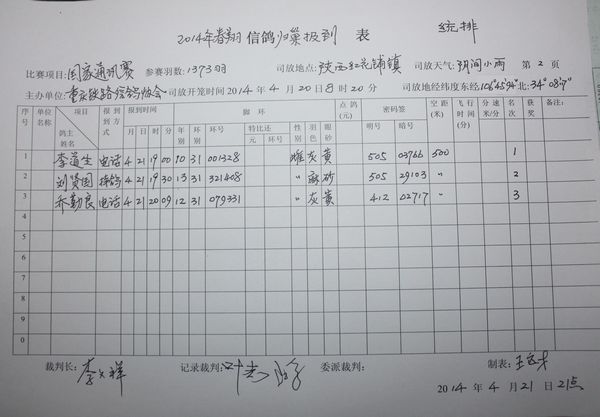 2014年春翔信鸽归巢报到 表 统排
比赛项目:国家通讯赛 参赛羽数:1373羽 司放地点:陕西红花铺镇 司放天气:阴间小雨 第 2 页
主办单位:重庆铁路信鸽协会 司放开笼时间2014年 4月20日8时20分 司放地经纬度东经106°45'94"北:34°08'9"
序号 单位名称 项目 鸽主姓名 报到方式 报到时间 月 日 时 分 脚环 年别 环别 环号 特比还 元 环号 性别 羽色 眼砂 点鸽(元) 密码签 明号 暗号 空距(米) 飞行时间(分) 分速米/分 名次 获奖 备注:
1 李道生 电话 4 21 19 00 10 31 001328 雄 灰 黄 505 03766 500 1
2 刘贤国 4 21 19 30 13 31 321408 〃 砂 505 29103 〃 2
3 乔勤良 电话 4 21 20 09 12 31 079331 〃 灰 黄 412 02717 〃 3
4
5
6
7
8
9
0
裁判长: 李 祥 记录裁判: 叶志 委派裁判: 制表: 王
2014年 4月21日 21点